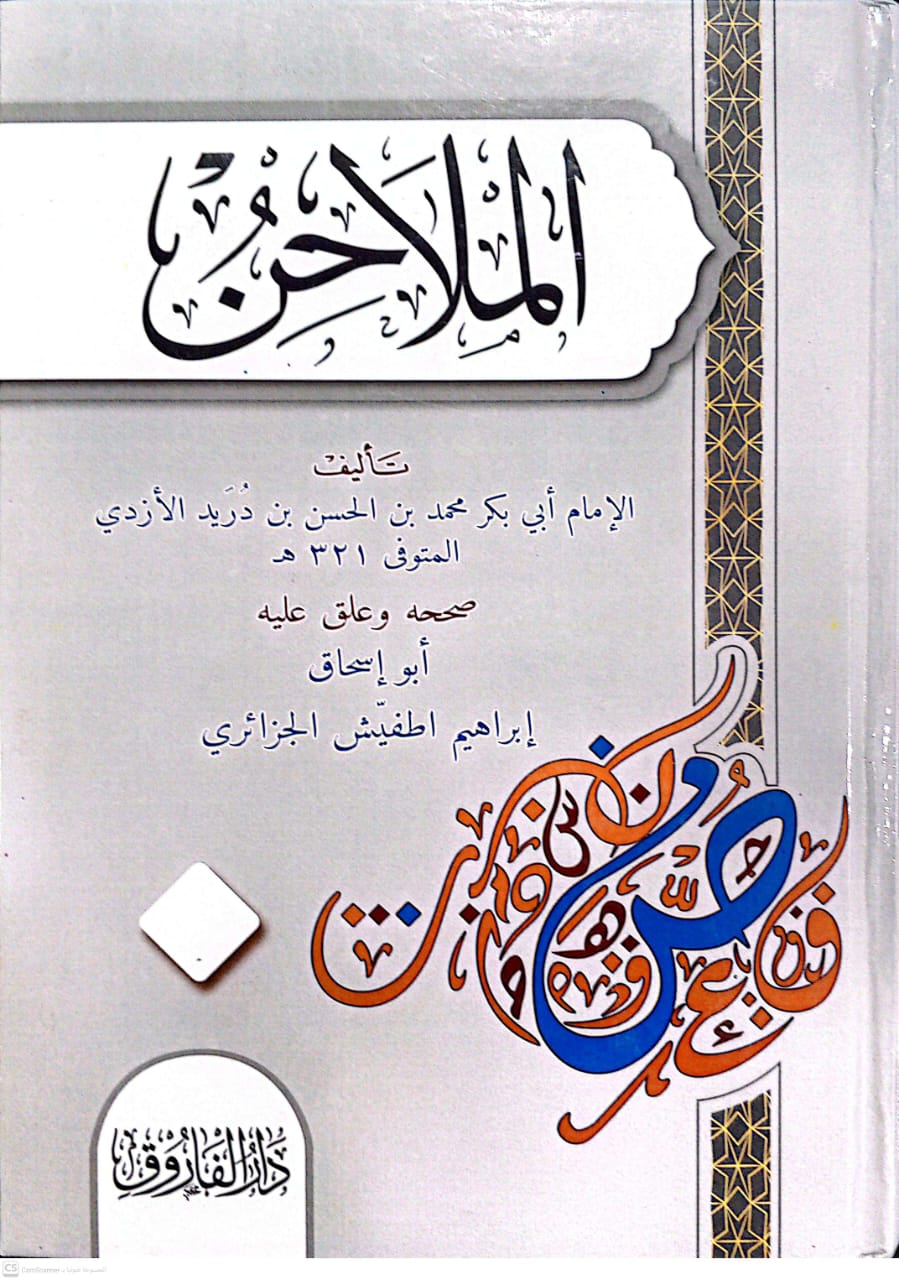 المْلاحِنُ
تَأليفْ
الإمام أبي بكر محمد بن الحسن بن دُرَيد الأزدي
المتوفى ٣٢١ هـ
صححه وعلق عليه
أبو إسحاق
إبراهيم اطفيّش الجزائري
دَارُ الفَارُوق
CS CamScanner الممسوحة ضوئيا بـ